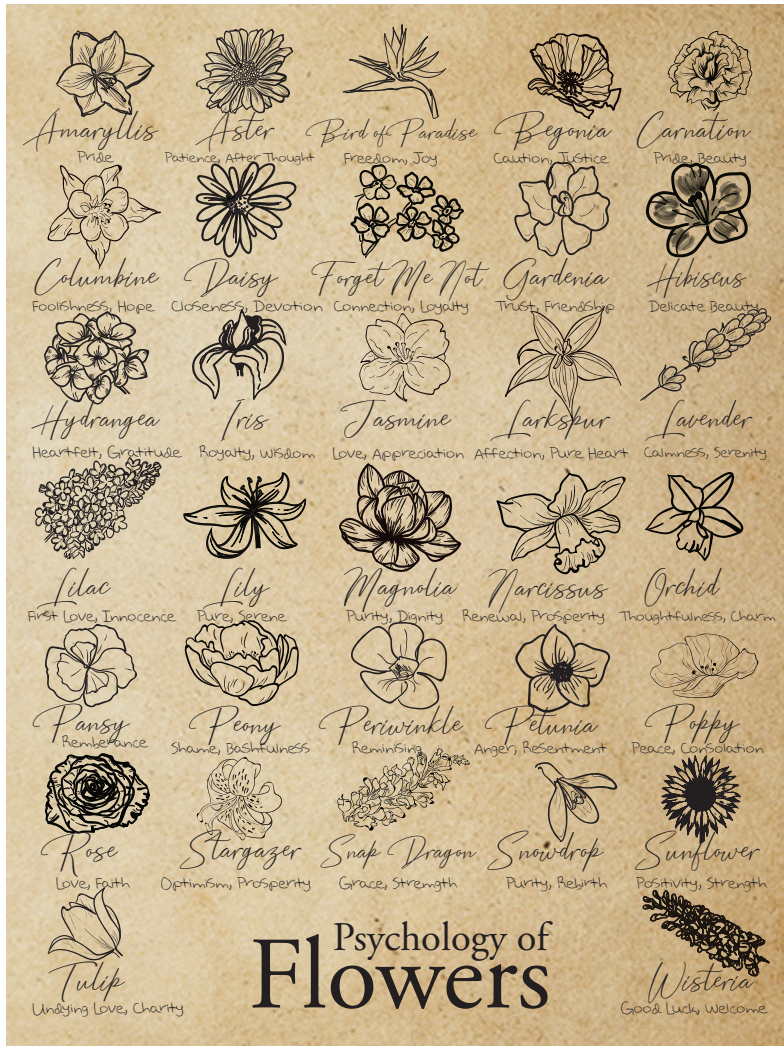 Amaryllis
Pride
Aster
Patience, After Thought
Bird of Paradise
Freedom, Joy
Begonia
Caution, Justice
Carnation
Pride, Beauty
Columbine
Foolishness, Hope
Daisy
Closeness, Devotion
Forget Me Not
Connection, Loyalty
Gardenia
Trust, Friendship
Hibiscus
Delicate Beauty
Hydrangea
Heartfelt, Gratitude
Iris
Royalty, Wisdom
Jasmine
Love, Appreciation
Larkspur
Affection, Pure Heart
Lavender
Calmness, Serenity
Lilac
First Love, Innocence
Lily
Pure, Serene
Magnolia
Purity, Dignity
Narcissus
Renewal, Prosperity
Orchid
Thoughtfulness, Charm
Pansy
Rembefance
Peony
Shame, Bashfulness
Periwinkle
Reminising
Petunia
Anger, Resentment
Poppy
Peace, Consolation
Rose
Love, Faith
Stargazer
Optimism, Prosperity
Snap Dragon
Grace, Stremgth
Snowdrop
Purity, Rebirth
Sunflower
Positivity, Strength
Tulip
Undying Love, Charity
Psychology of
Flowers
Wisteria
Good Luck, Welcome